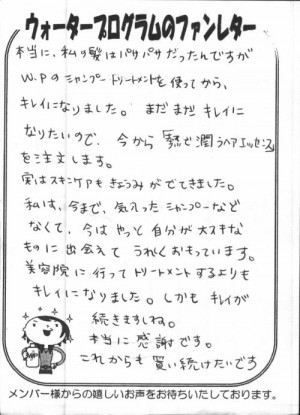 ウォータープログラムのファンレター
本当に、私の髪はパサパサだったんですが
W.Pのシャンプートリートメントを使ってから、
キレイになりました。まだまだキレイに
なりたいので、今から「髪で潤うヘアエッセンス」
を注文します。
実はスキンケアもきょうみがでてきました。
私は、今まで、気入ったシャンプーなど
なくて、今はやっと自分が大スキな
ものに出会えてうれしくおもっています。
美容院に行ってトリートメントするよりも
キレイになりました。しかもキレイが
続きますしね。
本当に感謝です。
これからも買い続けたいです
メンバー様からの嬉しいお声をお待ちいたしております。